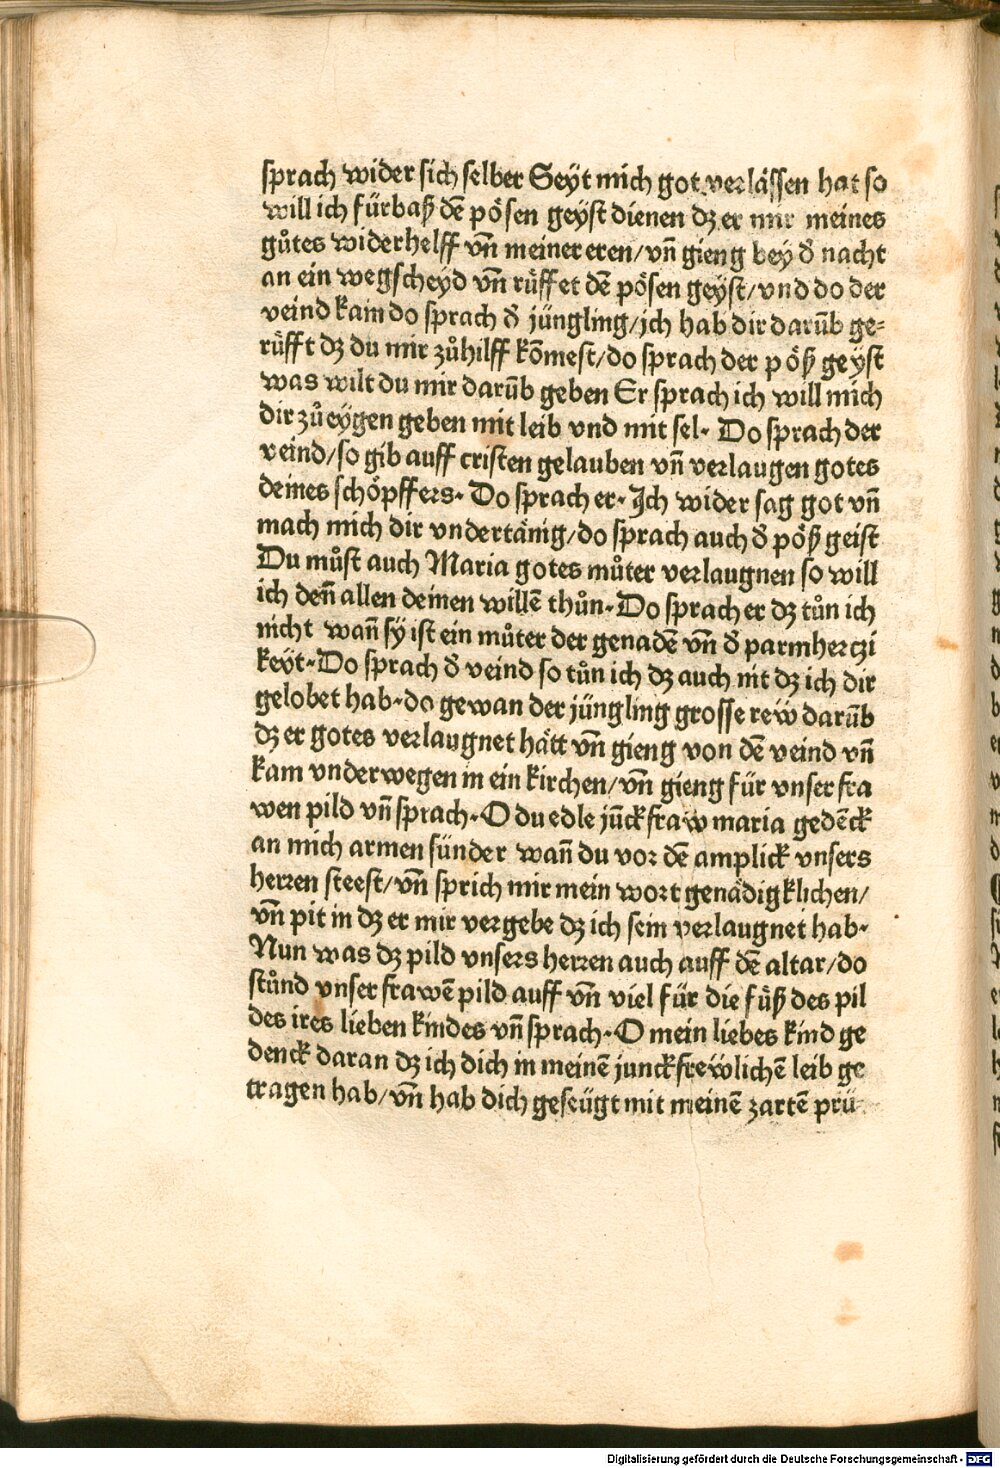 sprach wider sich selber Seyt mich got verlässen hat so
will ich fürbaß dē pösen geyst dienen dꝫ er mir meines
gůtes widerhelff vn̄ meiner eren/vn̄ gieng bey đ nacht
an ein wegscheyd vn̄ rüffet dē pösen geyst/vnd do der
veind kam do sprach đ jüngling/jch hab dir darūb ge⸗
rüfft dꝫ du mir zůhilff kōmest/do sprach der pöß geyst
was wilt du mir darūb geben Er sprach ich will mich
dir zů eygen geben mit leib vnd mit sel· Do sprach der
veind/so gib auff cristen gelauben vn̄ verlaugen gotes
deines schöpffers· Do sprach er· Jch wider sag got vn̄
mach mich dir vndertänig/do sprach auch đ pöß geist
Du můst auch Maria gotes můter verlaugnen so will
ich den̄ allen deinen willē thůn· Do sprach er dꝫ tůn ich
nicht wan̄ sy ist ein můter der genadē vn̄ đ parmherczi
keyt· Do sprach đ veind so tůn ich dꝫ auch nit dꝫ ich dir
gelobet hab· do gewan der jüngling grosse rew darūb
dꝫ er gotes verlaugnet hätt vn̄ gieng von dē veind vn̄
kam vnderwegen in ein kirchen/vn̄ gieng für vnser fra
wen pild vn̄ sprach· O du edle jūckfraw maria gedēck
an mich armen sünder wan̄ du vor dē amplick vnsers
herren steest/vn̄ sprich mir mein wort genädigklichen/
vn̄ pit in dꝫ er mir vergebe dꝫ ich sein verlaugnet hab·
Nun was dꝫ pild vnsers herren auch auff dē altar/do
stůnd vnser frawē pild auff vn̄ viel für die füß des pil
des ires lieben kindes vn̄ sprach· O mein liebes kind ge
denck daran dꝫ ich dich in meinē junckfrewlichē leib ge
tragen hab/vn̄ hab dich geseügt mit meinē zartē prü
Digitalisierung gefördert durch die Deutsche Forschungsgemeinschaft - DFG